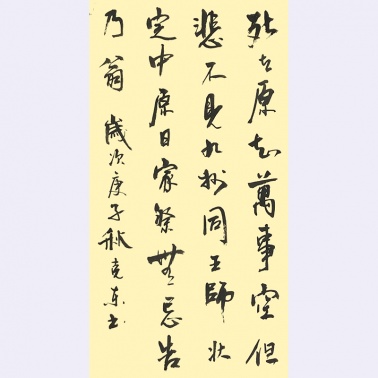 死去原知萬事空但
悲不見九州同王師北
定中原日家祭無忘告
乃翁 歲次庚子秋克東書